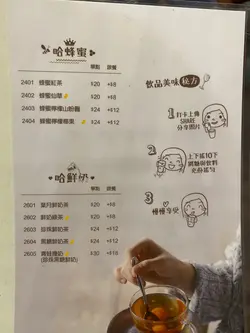 哈蜂蜜
單點 跟餐
2401 蜂蜜紅茶 $20 +$8
2402 蜂蜜仙草 $20 +$8
2403 蜂蜜檸檬山粉圓 $24 +$12
2404 蜂蜜檸檬椰果 $24 +$12
飲品美味秘方
1 打卡上傳
SHARE
分享圖片
2 上下搖10下
讓糖與飲料
充份搖勻
3 慢慢享受
哈鮮奶
單點 跟餐
2601 鮮奶茶 $20 +$8
2602 鮮奶綠茶 $20 +$8
2603 珍珠鮮奶茶 $24 +$12
2604 黑糖鮮奶茶 $24 +$12
2605 青蛙撞奶 $30 +$18
(珍珠黑糖鮮奶)